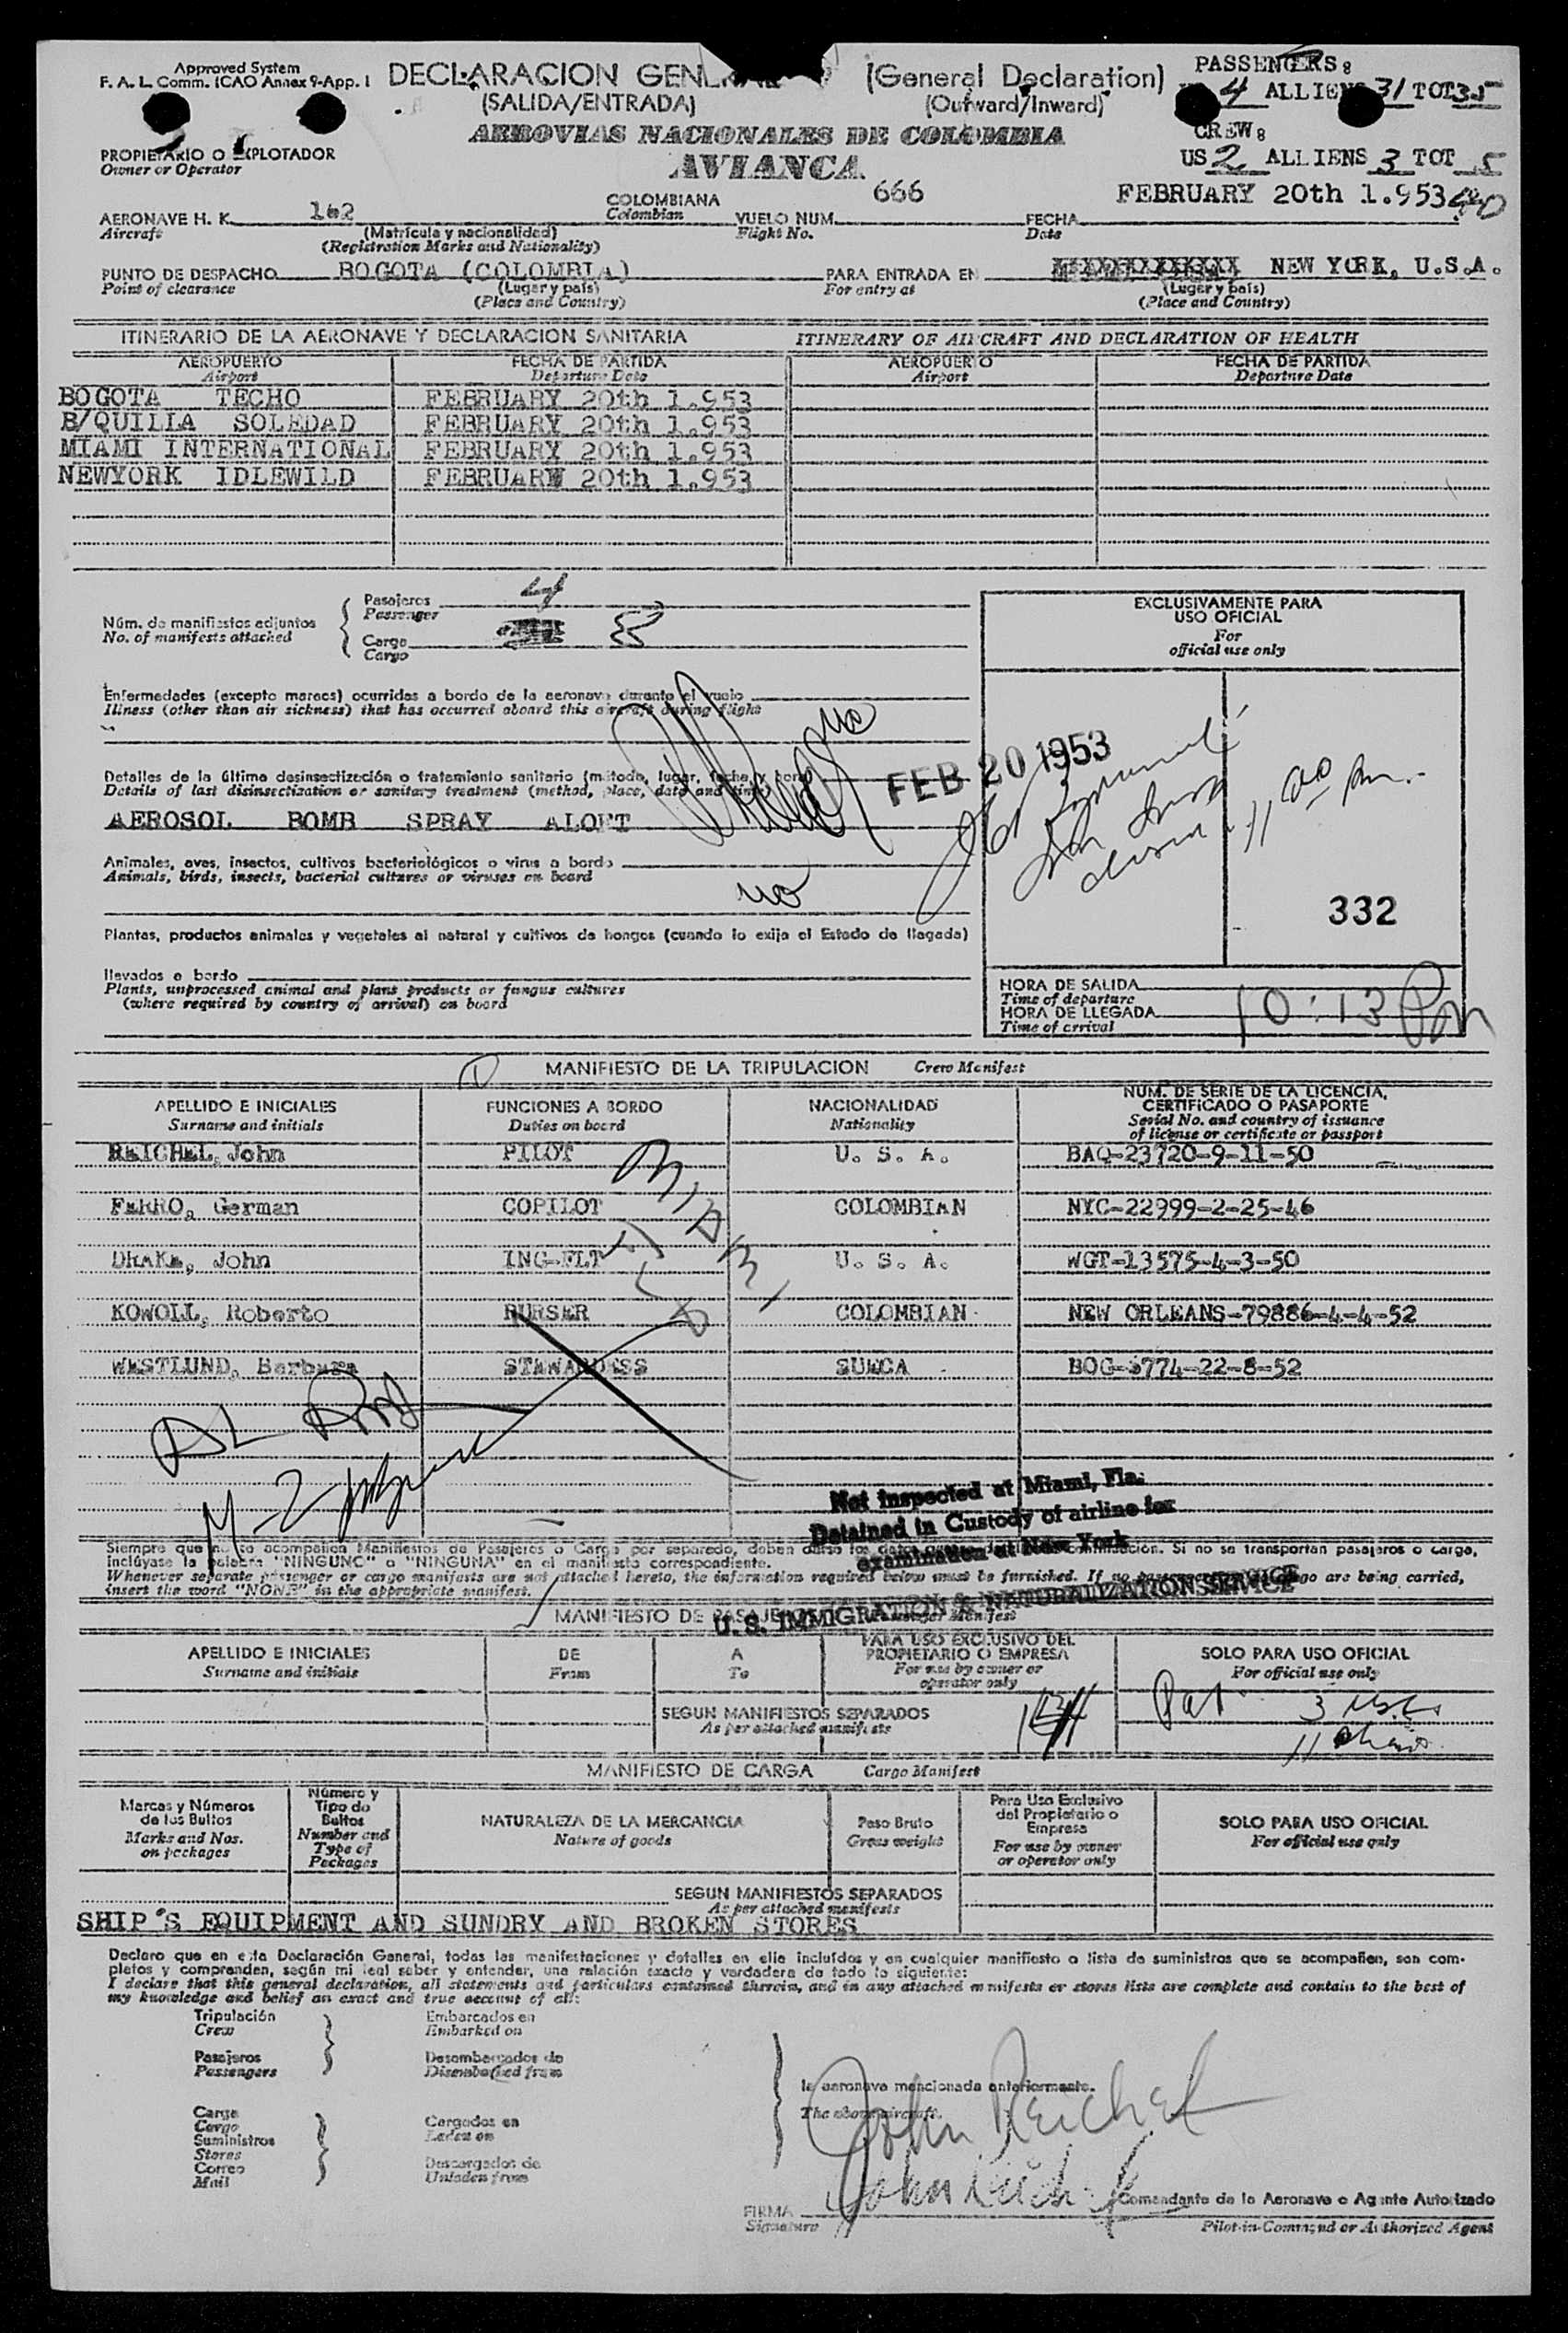 Approved System
F. A. L. Comm. ICAO Annex 9-App. I
DECLARACION (General Declaration)
(SALIDA/ENTRADA) (Outward/Inward)
AEROVIAS NACIONALES DE COLOMBIA
AVIANCA
PASSENGERS:
4 ALLIENS 31 TOT 35
CREW:
US 2 ALLIENS 3 TOT 5
PROPIETARIO O EXPLOTADOR
Owner or Operator
AERONAVE H. K. 162 COLOMBIANA VUELO NUM. 666 FECHA FEBRUARY 20th 1.953
Aircraft (Matrícula y nacionalidad) Colombian Flight No. Date
(Registration Marks and Nationality)
PUNTO DE DESPACHO BOGOTA (COLOMBIA) PARA ENTRADA EN NEW YORK, U.S.A.
Point of clearance (Lugar y país) For entry at (Lugar y país)
(Place and Country) (Place and Country)
ITINERARIO DE LA AERONAVE Y DECLARACION SANITARIA ITINERARY OF AIRCRAFT AND DECLARATION OF HEALTH
AEROPUERTO FECHA DE PARTIDA AEROPUERTO FECHA DE PARTIDA
Airport Departure Date Airport Departure Date
BOGOTA TECHO FEBRUARY 20th 1.953
B/QUILLA SOLEDAD FEBRUARY 20th 1.953
MIAMI INTERNATIONAL FEBRUARY 20th 1.953
NEWYORK IDLEWILD FEBRUARY 20th 1.953
Núm. de manifiestos adjuntos
No. of manifests attached
Pasajeros 4
Passenger
Carga 8
Cargo
EXCLUSIVAMENTE PARA
USO OFICIAL
For
official use only
Enfermedades (excepto mareos) ocurridas a bordo de la aeronave durante el vuelo
Illness (other than air sickness) that has occurred aboard this aircraft during flight
no
FEB 20 1953
11 00 pm.
Detalles de la última desinsectización o tratamiento sanitario (método, lugar, fecha y hora)
Details of last disinsectization or sanitary treatment (method, place, date and time)
AEROSOL BOMB SPRAY ALOFT
Animales, aves, insectos, cultivos bacteriológicos o virus a bordo
Animals, birds, insects, bacterial cultures or viruses on board
no
332
Plantas, productos animales y vegetales al natural y cultivos de hongos (cuando lo exija el Estado de llegada)
llevados a bordo
Plants, unprocessed animal and plans products or fungus cultures
(where required by country of arrival) on board
HORA DE SALIDA
Time of departure
HORA DE LLEGADA 10:13 Pm
Time of arrival
MANIFIESTO DE LA TRIPULACION Crew Manifest
APELLIDO E INICIALES FUNCIONES A BORDO NACIONALIDAD NUM. DE SERIE DE LA LICENCIA, CERTIFICADO O PASAPORTE
Surname and initials Duties on board Nationality Serial No. and country of issuance of license or certificate or passport
REICHEL, John PILOT U. S. A. BAQ-23720-9-11-50
FERRO, German COPILOT COLOMBIAN NYC-22999-2-25-46
DRAKE, John ING-FLT U. S. A. WGT-13575-4-3-50
KOWOLL, Roberto PURSER COLOMBIAN NEW ORLEANS-79886-4-4-52
WESTLUND, Barbara STEWARDESS SUECA BOG-3774-22-8-52
MIAMI
Not inspected at Miami, Fla.
Detained in Custody of airline for
examination at New York
U. S. IMMIGRATION & NATURALIZATION SERVICE
Siempre que no se acompañen Manifiestos de Pasajeros o Carga por separado, deben darse los datos continuación. Si no se transportan pasajeros o carga,
inclúyase la palabra "NINGUNO" o "NINGUNA" en el manifiesto correspondiente.
Whenever separate passenger or cargo manifests are not attached hereto, the information required below must be furnished. If no cargo are being carried,
insert the word "NONE" in the appropriate manifest.
MANIFIESTO DE PASAJEROS
APELLIDO E INICIALES DE A PARA USO EXCLUSIVO DEL PROPIETARIO O EMPRESA SOLO PARA USO OFICIAL
Surname and initials From To For use by owner or operator only For official use only
SEGUN MANIFIESTOS SEPARADOS
As per attached manifests
MANIFIESTO DE CARGA Cargo Manifest
Marcas y Números de los Bultos Número y Tipo de Bultos NATURALEZA DE LA MERCANCIA Peso Bruto Para Uso Exclusivo del Propietario o Empresa SOLO PARA USO OFICIAL
Marks and Nos. on packages Number and Type of Packages Nature of goods Gross weight For use by owner or operator only For official use only
SEGUN MANIFIESTOS SEPARADOS
As per attached manifests
SHIP'S EQUIPMENT AND SUNDRY AND BROKEN STORES
Declaro que en esta Declaración General, todas las manifestaciones y detalles en ella incluídos y en cualquier manifiesto o lista de suministros que se acompañen, son com-
pletos y comprenden, según mi leal saber y entender, una relación exacta y verdadera de todo lo siguiente:
I declare that this general declaration, all statements and particulars contained therein, and in any attached manifests or stores lists are complete and contain to the best of
my knowledge and belief an exact and true account of all:
Tripulación Embarcados en
Crew Embarked on
Pasajeros Desembarcados de
Passengers Disembarked from
la aeronave mencionada anteriormente.
The above aircraft.
Carga Cargados en
Cargo Laden on
Suministros
Stores
Correo Descargados de
Mail Unladen from
John Reichel
John Reichel
FIRMA Comandante de la Aeronave o Agente Autorizado
Signature Pilot-in-Command or Authorized Agent